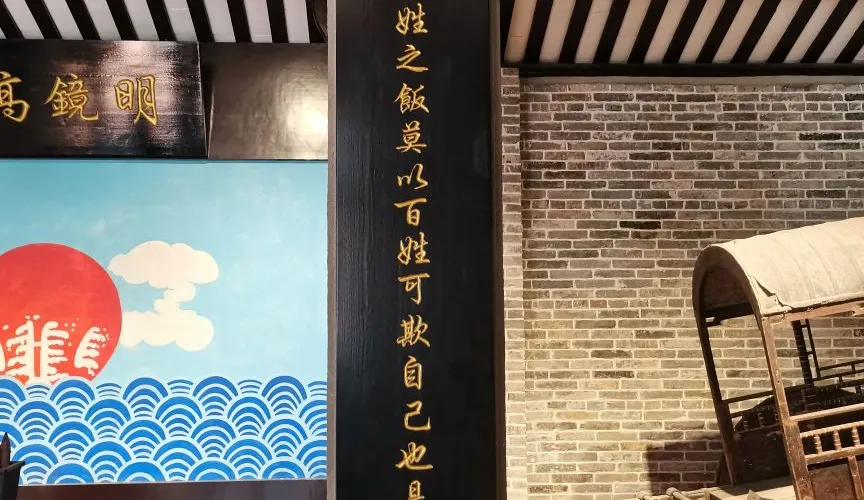 明鏡高
姓之飯莫以百姓可欺自己也